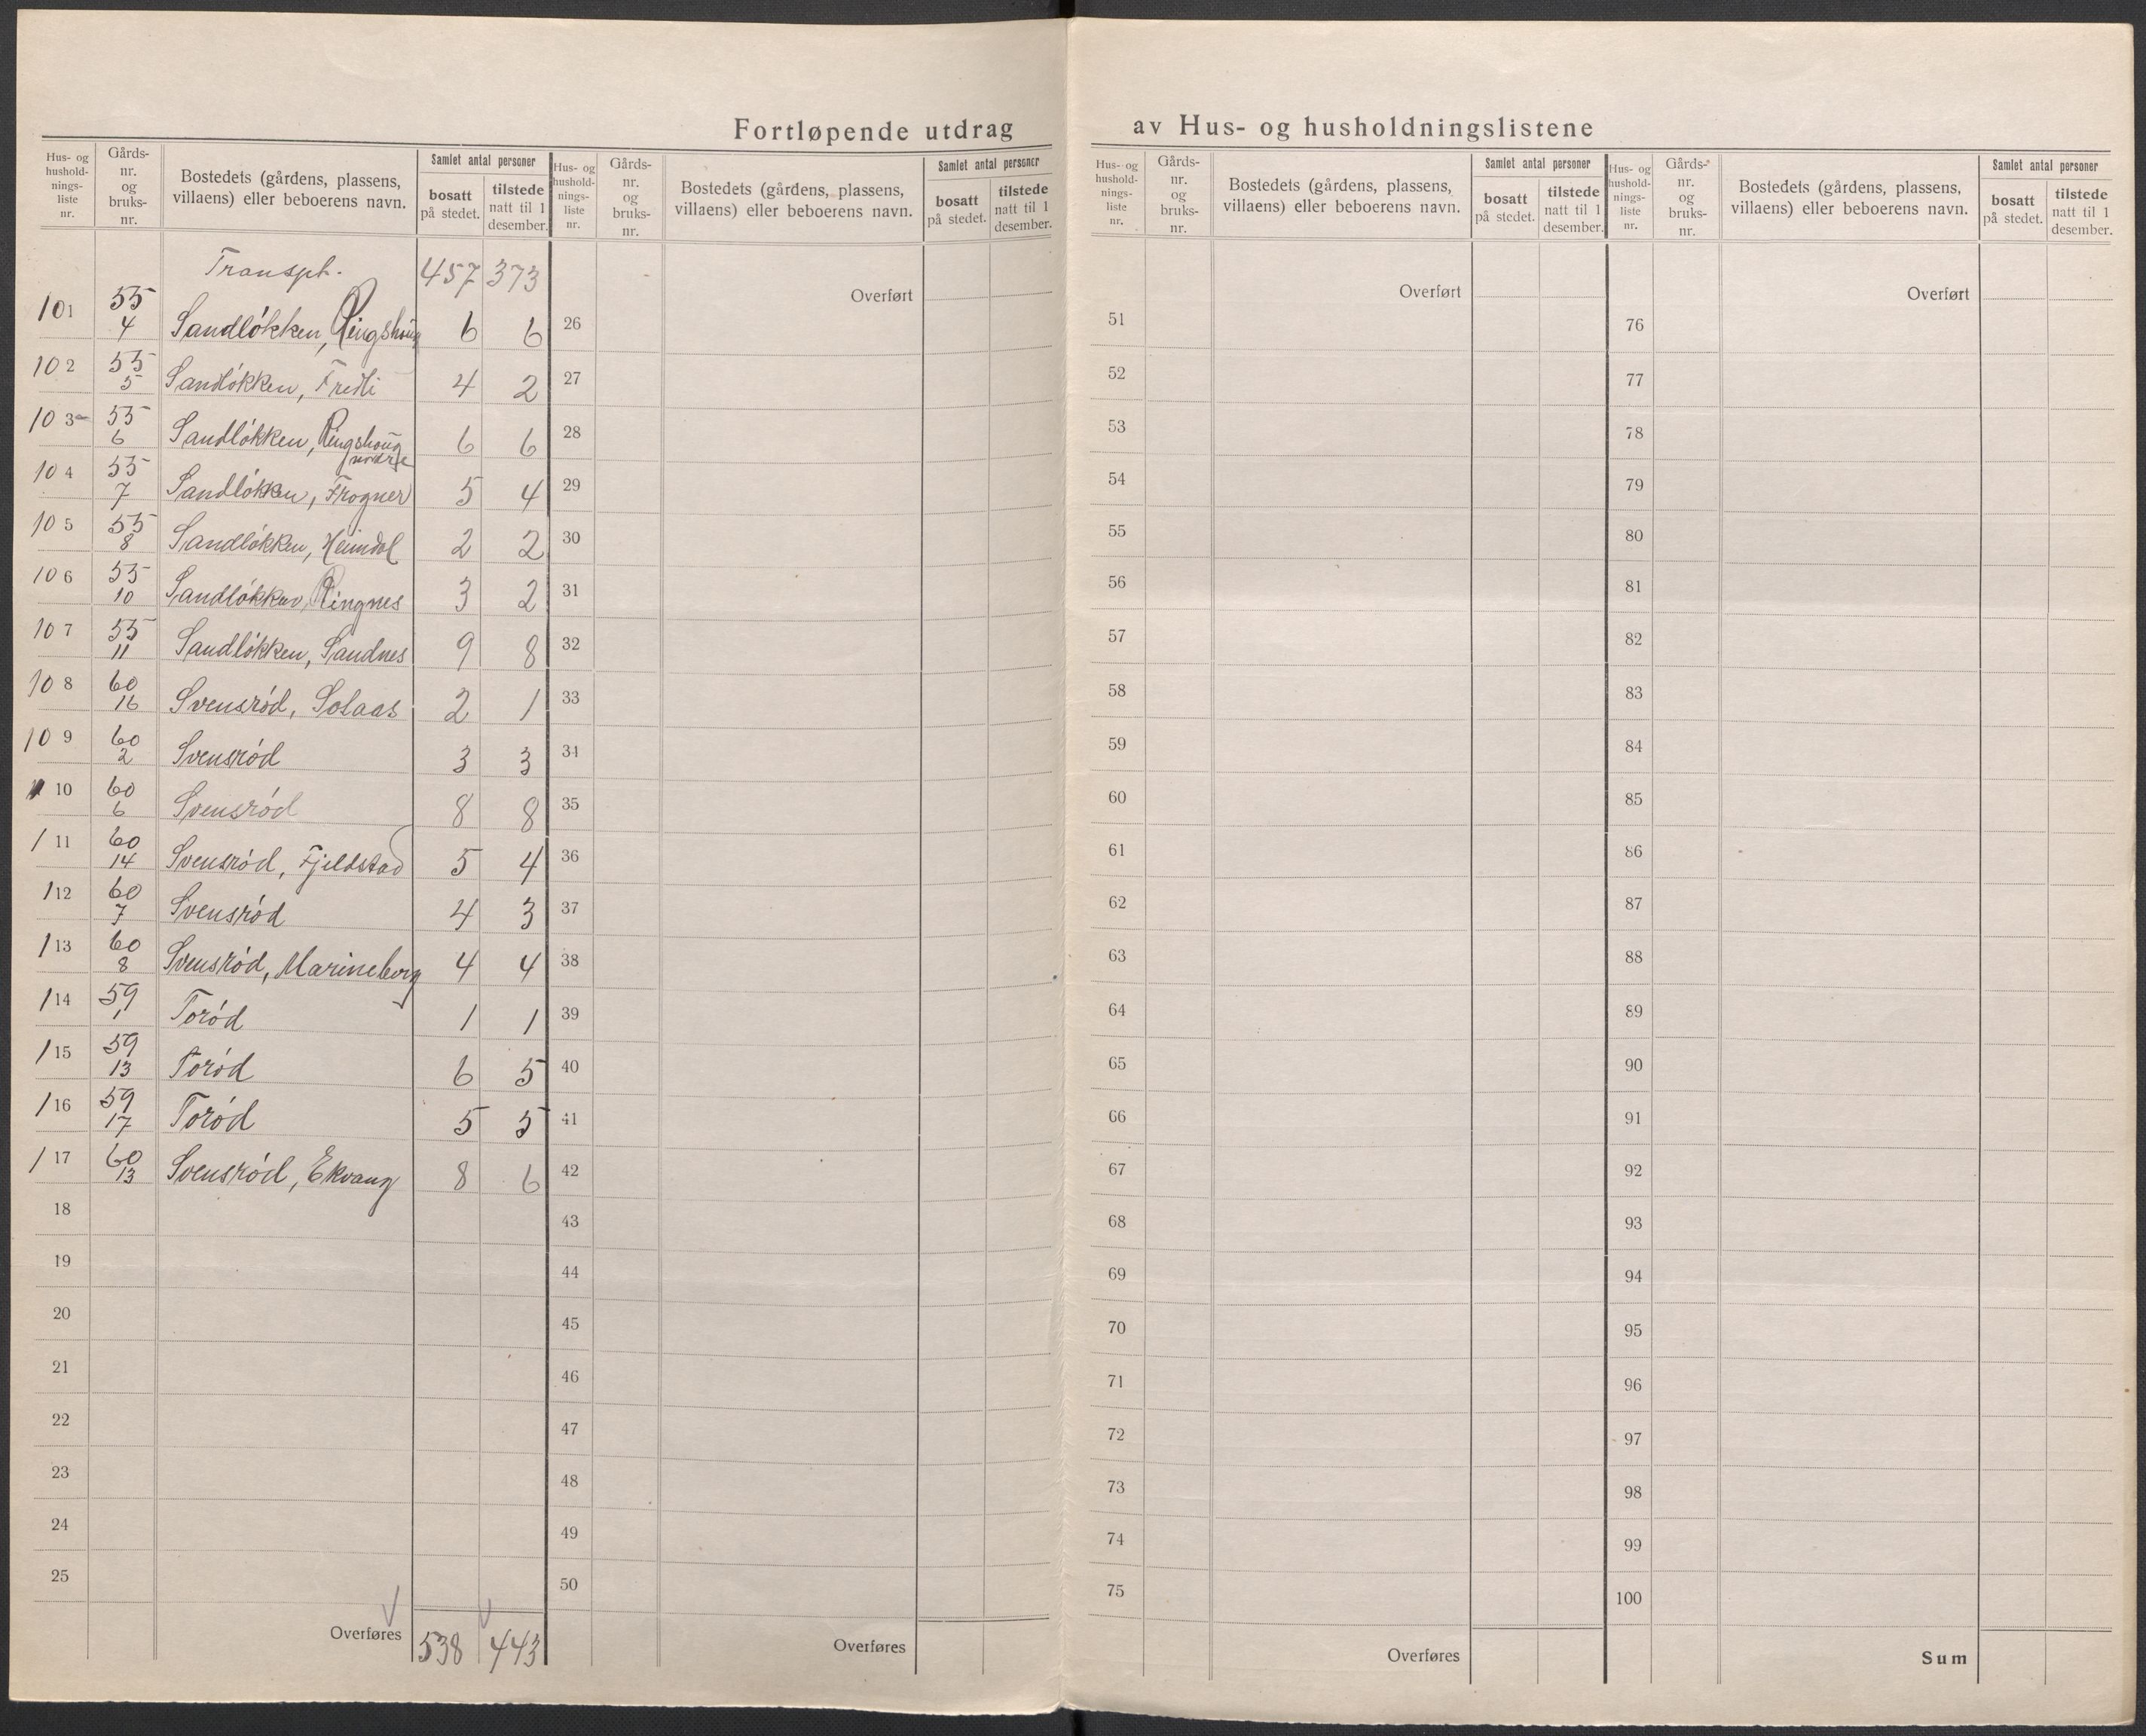 Fortløpende utdrag av Hus- og husholdningslistene
Hus- og husholdnings-liste nr. | Gårds-nr. og bruks-nr. | Bostedets (gårdens, plassens, villaens) eller beboerens navn. | Samlet antal personer | bosatt på stedet. | tilstede natt til 1 desember.
Transpt. 457 373
101 55 4 Sandløkken, Ringshoug 6 6
102 55 5 Sandløkken, Fredli 4 2
103 55 6 Sandløkken, Ringshoug nordre 6 6
104 55 7 Sandløkken, Frogner 5 4
105 55 8 Sandløkken, Heimdal 2 2
106 55 10 Sandløkken, Ringnes 3 2
107 55 11 Sandløkken, Sandnes 9 8
108 60 16 Svensrød, Solaas 2 1
109 60 2 Svensrød 3 3
110 60 6 Svensrød 8 8
111 60 14 Svensrød, Fjeldstad 5 4
112 60 7 Svensrød 4 3
113 60 8 Svensrød, Marineborg 4 4
114 59 1 Torød 1 1
115 59 13 Torød 6 5
116 59 17 Torød 5 5
117 60 13 Svensrød, Ekvang 8 6
18
19
20
21
22
23
24
25
Overføres 538 443
Hus- og husholdnings-liste nr. | Gårds-nr. og bruks-nr. | Bostedets (gårdens, plassens, villaens) eller beboerens navn. | Samlet antal personer | bosatt på stedet. | tilstede natt til 1 desember.
Overført
26
27
28
29
30
31
32
33
34
35
36
37
38
39
40
41
42
43
44
45
46
47
48
49
50
Overføres
Hus- og husholdnings-liste nr. | Gårds-nr. og bruks-nr. | Bostedets (gårdens, plassens, villaens) eller beboerens navn. | Samlet antal personer | bosatt på stedet. | tilstede natt til 1 desember.
Overført
51
52
53
54
55
56
57
58
59
60
61
62
63
64
65
66
67
68
69
70
71
72
73
74
75
Overføres
Hus- og husholdnings-liste nr. | Gårds-nr. og bruks-nr. | Bostedets (gårdens, plassens, villaens) eller beboerens navn. | Samlet antal personer | bosatt på stedet. | tilstede natt til 1 desember.
Overført
76
77
78
79
80
81
82
83
84
85
86
87
88
89
90
91
92
93
94
95
96
97
98
99
100
Sum